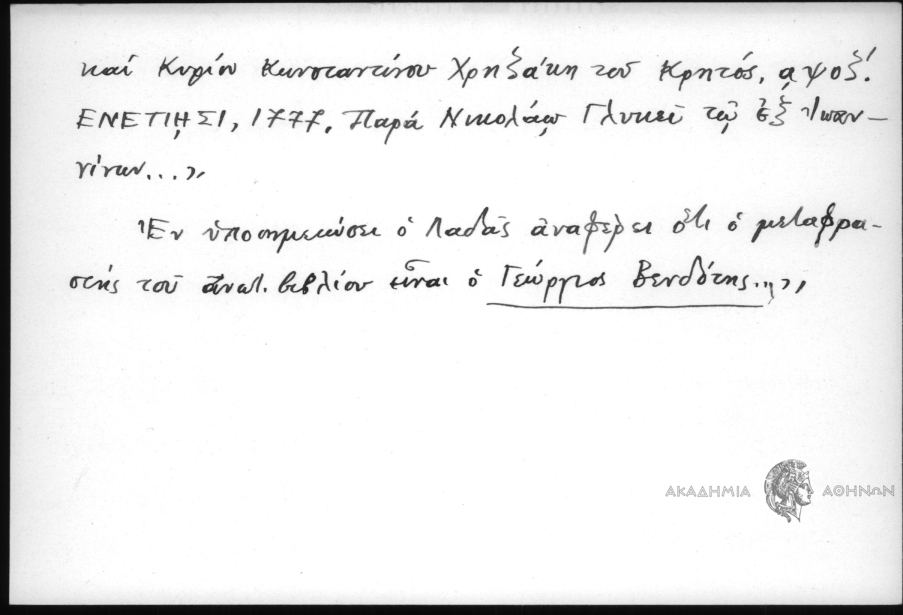 καί Κυρίου Κωνσταντίνου Χρηζάκη του Κρητός, αψοζ'.
ΕΝΕΤΙΗΣΙ, 1777. Παρά Νικολάῳ Γλυκεῖ τῷ ἐξ Ἰωαν-
νίνων...»
Ἐν ὑποσημειώσει ὁ Λαδᾶς ἀναφέρει ὅτι ὁ μεταφρα-
στής τοῦ ἀνωτ. βιβλίου εἶναι ὁ Γεώργιος Βενδότης...»
ΑΚΑΔΗΜΙΑ ΑΘΗΝΩΝ